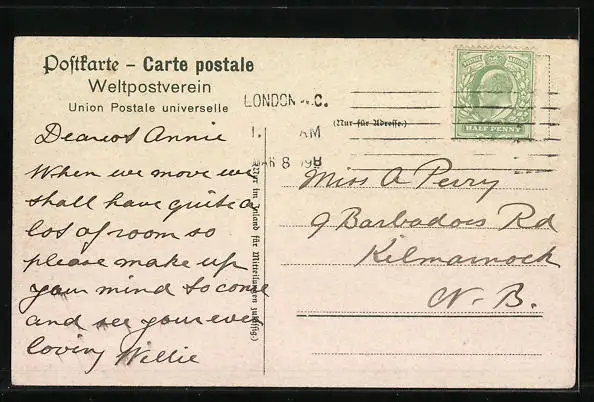 Postkarte – Carte postale
Weltpostverein
Union Postale universelle
LONDON .C.
1. AM
MAR 8 08
(Nur für Adresse.)
HALF PENNY
(Nur im Inland für Mitteilungen zulässig)
Dearest Annie
When we move we
shall have quite a
lot of room so
please make up
your mind to come
and see your ever
loving Willie
Miss A Perry
9 Barbadoes Rd
Kilmarnock
N. B.